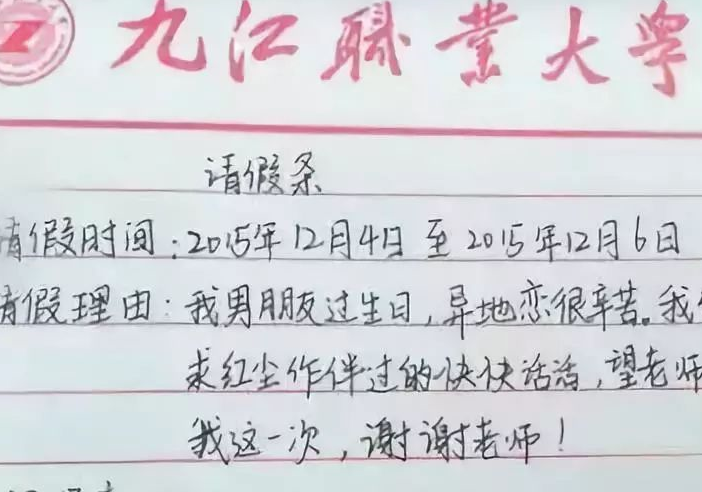 九江职业大学
请假条
请假时间:2015年12月4日至2015年12月6日
请假理由:我男朋友过生日,异地恋很辛苦。我
求红尘作伴过的快快活活,望老师
我这一次,谢谢老师!